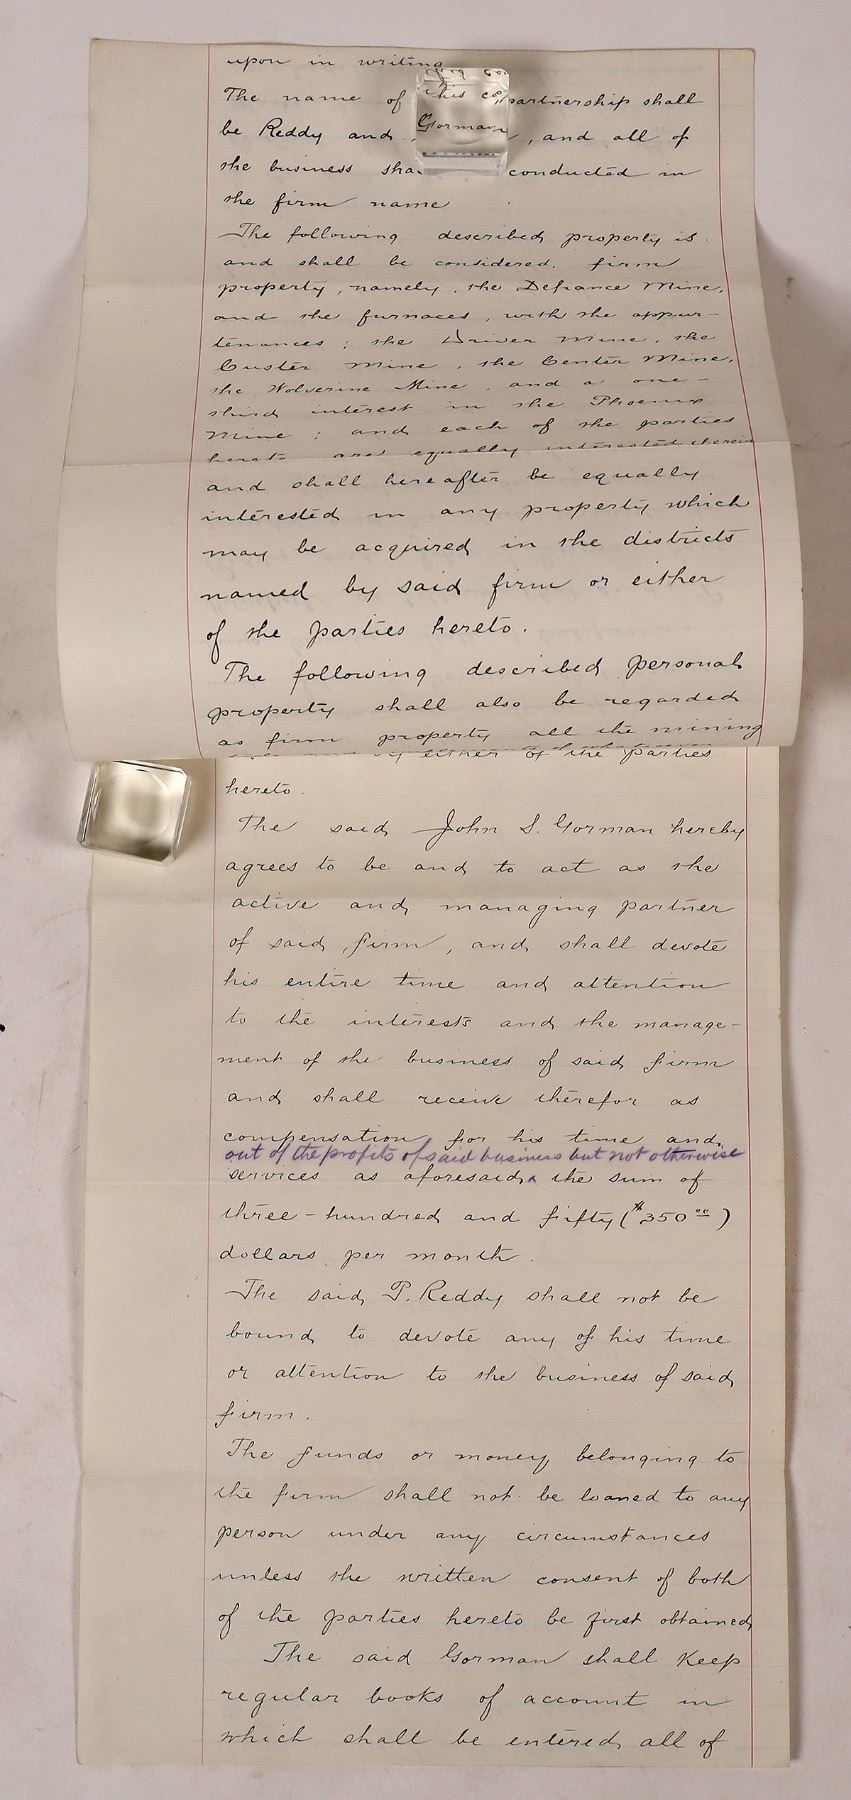 upon in writing
The name of this copartnership shall
be Reddy and Gorman, and all of
the business shall conducted in
the firm name
The following described property is
and shall be considered firm
property, namely, the Defiance Mine,
and the furnaces, with the appur-
tenances; the Driver Mine, the
Custer Mine, the Center Mine,
the Wolverine Mine, and a one-
third interest in the Phoenix
Mine; and each of the parties
hereto are equally interested therein
and shall hereafter be equally
interested in any property which
may be acquired in the districts
named by said firm or either
of the parties hereto.
The following described personal
property shall also be regarded
as firm property all the mining
by either of the parties
hereto.
The said John S. Gorman hereby
agrees to be and to act as the
active and managing partner
of said firm, and shall devote
his entire time and attention
to the interests and the manage-
ment of the business of said firm
and shall receive therefor as
compensation for his time and
out of the profits of said business but not otherwise
services as aforesaid ^ the sum of
three-hundred and fifty ($350 00)
dollars per month.
The said P. Reddy shall not be
bound to devote any of his time
or attention to the business of said
firm.
The funds or money belonging to
the firm shall not be loaned to any
person under any circumstances
unless the written consent of both
of the parties hereto be first obtained
The said Gorman shall keep
regular books of account in
which shall be entered all of